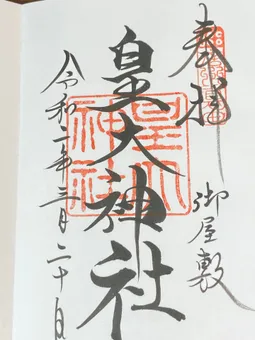 奉拝
御屋敷
皇大神社
皇大神社
令和二年三月二十日